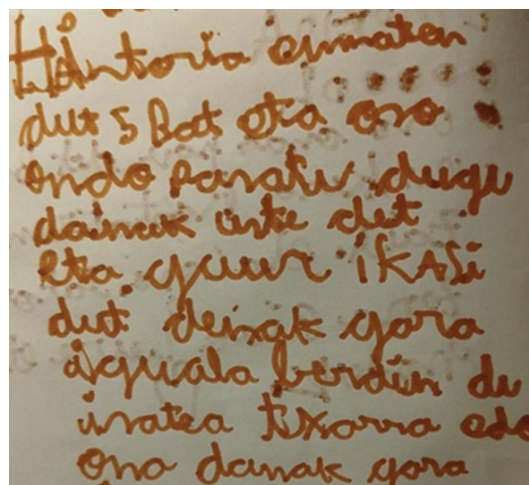 Historia ematen
dut 5 Bat eta oso
ondo pasatu dugu
dainak uste dut
eta gaur iKASi
dut deixak gara
iguala berdin du
izatea txarra edo
ona danak gara